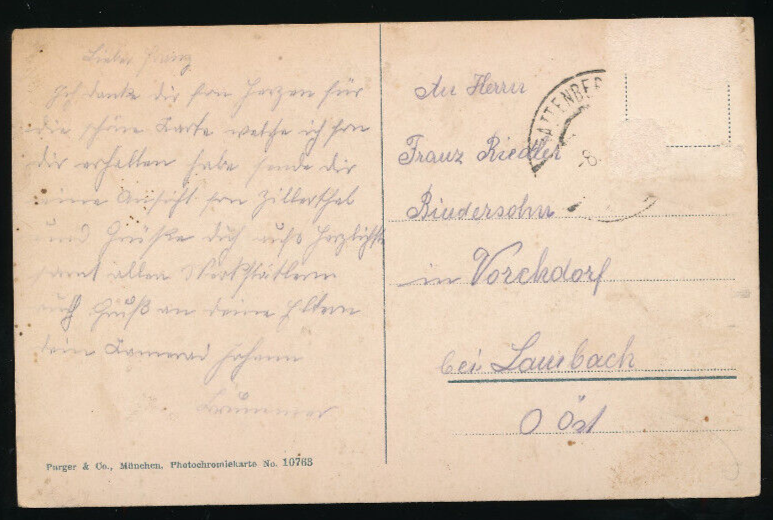 Lieber Franz
Ich danke dir fon Herzen für
die schöne Karte welche ich fon
dir erhalten habe sende dir
eine Ansicht fon Zillerthal
und Grüße dich aufs Herzlichste
samt allen
auch Gruß an deine Eltern
dein Kamerad Johann
Brummer
Purger & Co., München. Photochromiekarte No. 10763
ATTENBE
8
An Herrn
Franz Riedler
Bindersohn
in Vorchdorf
bei Lambach
O Öst